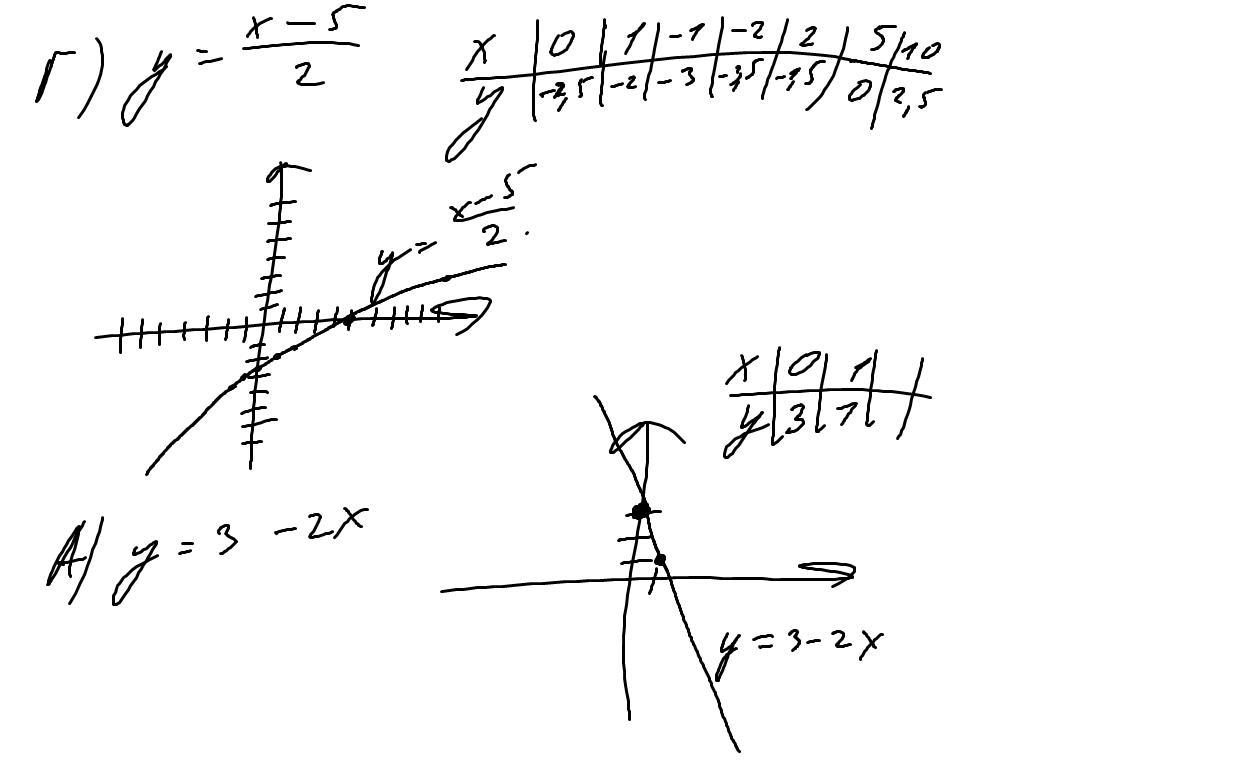 Г) y = (x - 5)/2
x | 0 | 1 | -1 | -2 | 2 | 5 | 10
y | -2,5 | -2 | -3 | -3,5 | -1,5 | 0 | 2,5
y = (x - 5)/2
x | 0 | 1 |
y | 3 | 1 |
А) y = 3 - 2x
y = 3 - 2x